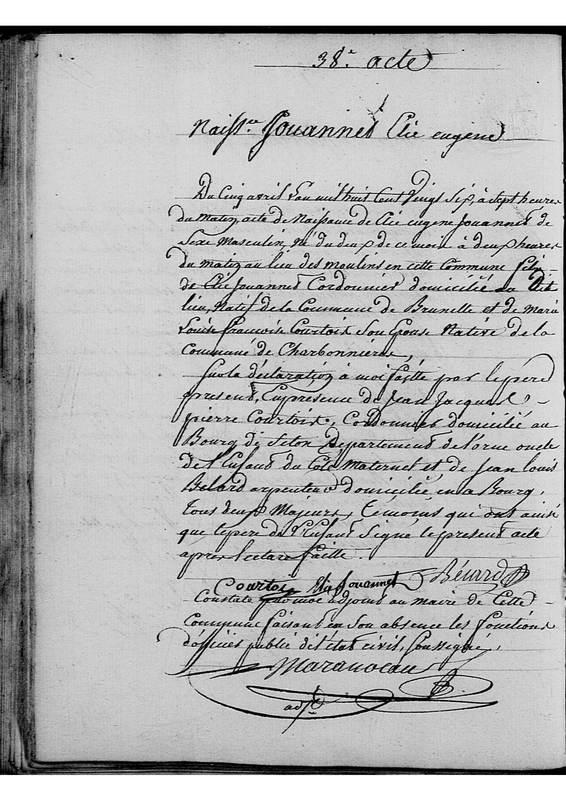 38.e acte
Naiss.ce Jouannet Elie eugene
Du Cinq avril l'an mil huit Cent Vingt Six, à Sept heures
du matin acte de Naissance de Elie eugene Jouannet de
Sexe Masculin, né du deux de ce mois à deux heures
du matin au lieu des moulins en cette Commune fils
de Elie Jouannet Cordonnier domicilié au dit
lieu, Natif de la Commune de Brunelle et de Marie
Louise francoise Courtois Son Epouse Native de la
Commune de Charbonnieres,
Sur la déclaration à moi faitte par le pere
present, En presence de Jean Jacques
pierre Courtois, Cordonnier domicilié au
Bourg de Departement de l'orne oncle
de l'Enfant du Coté Maternel et de Jean Louis
arpenteur domicilié en ce Bourg,
tous deux Majeurs, temoins qui ont ainsi
que le pere de l'Enfant Signé le present acte
apres lecture faitte.
Courtois Elie Jouannet Bérard
Constaté par moi adjoint au maire de Cette
Commune faisant en Son absence les fonctions
d'officier public de l'état civil, Soussigné,

adj.t